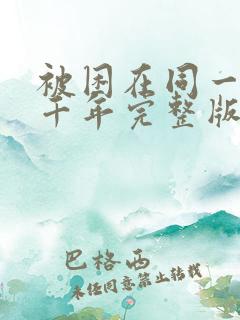 被困在同一
千年完整版
巴格西
未经同意禁止转载